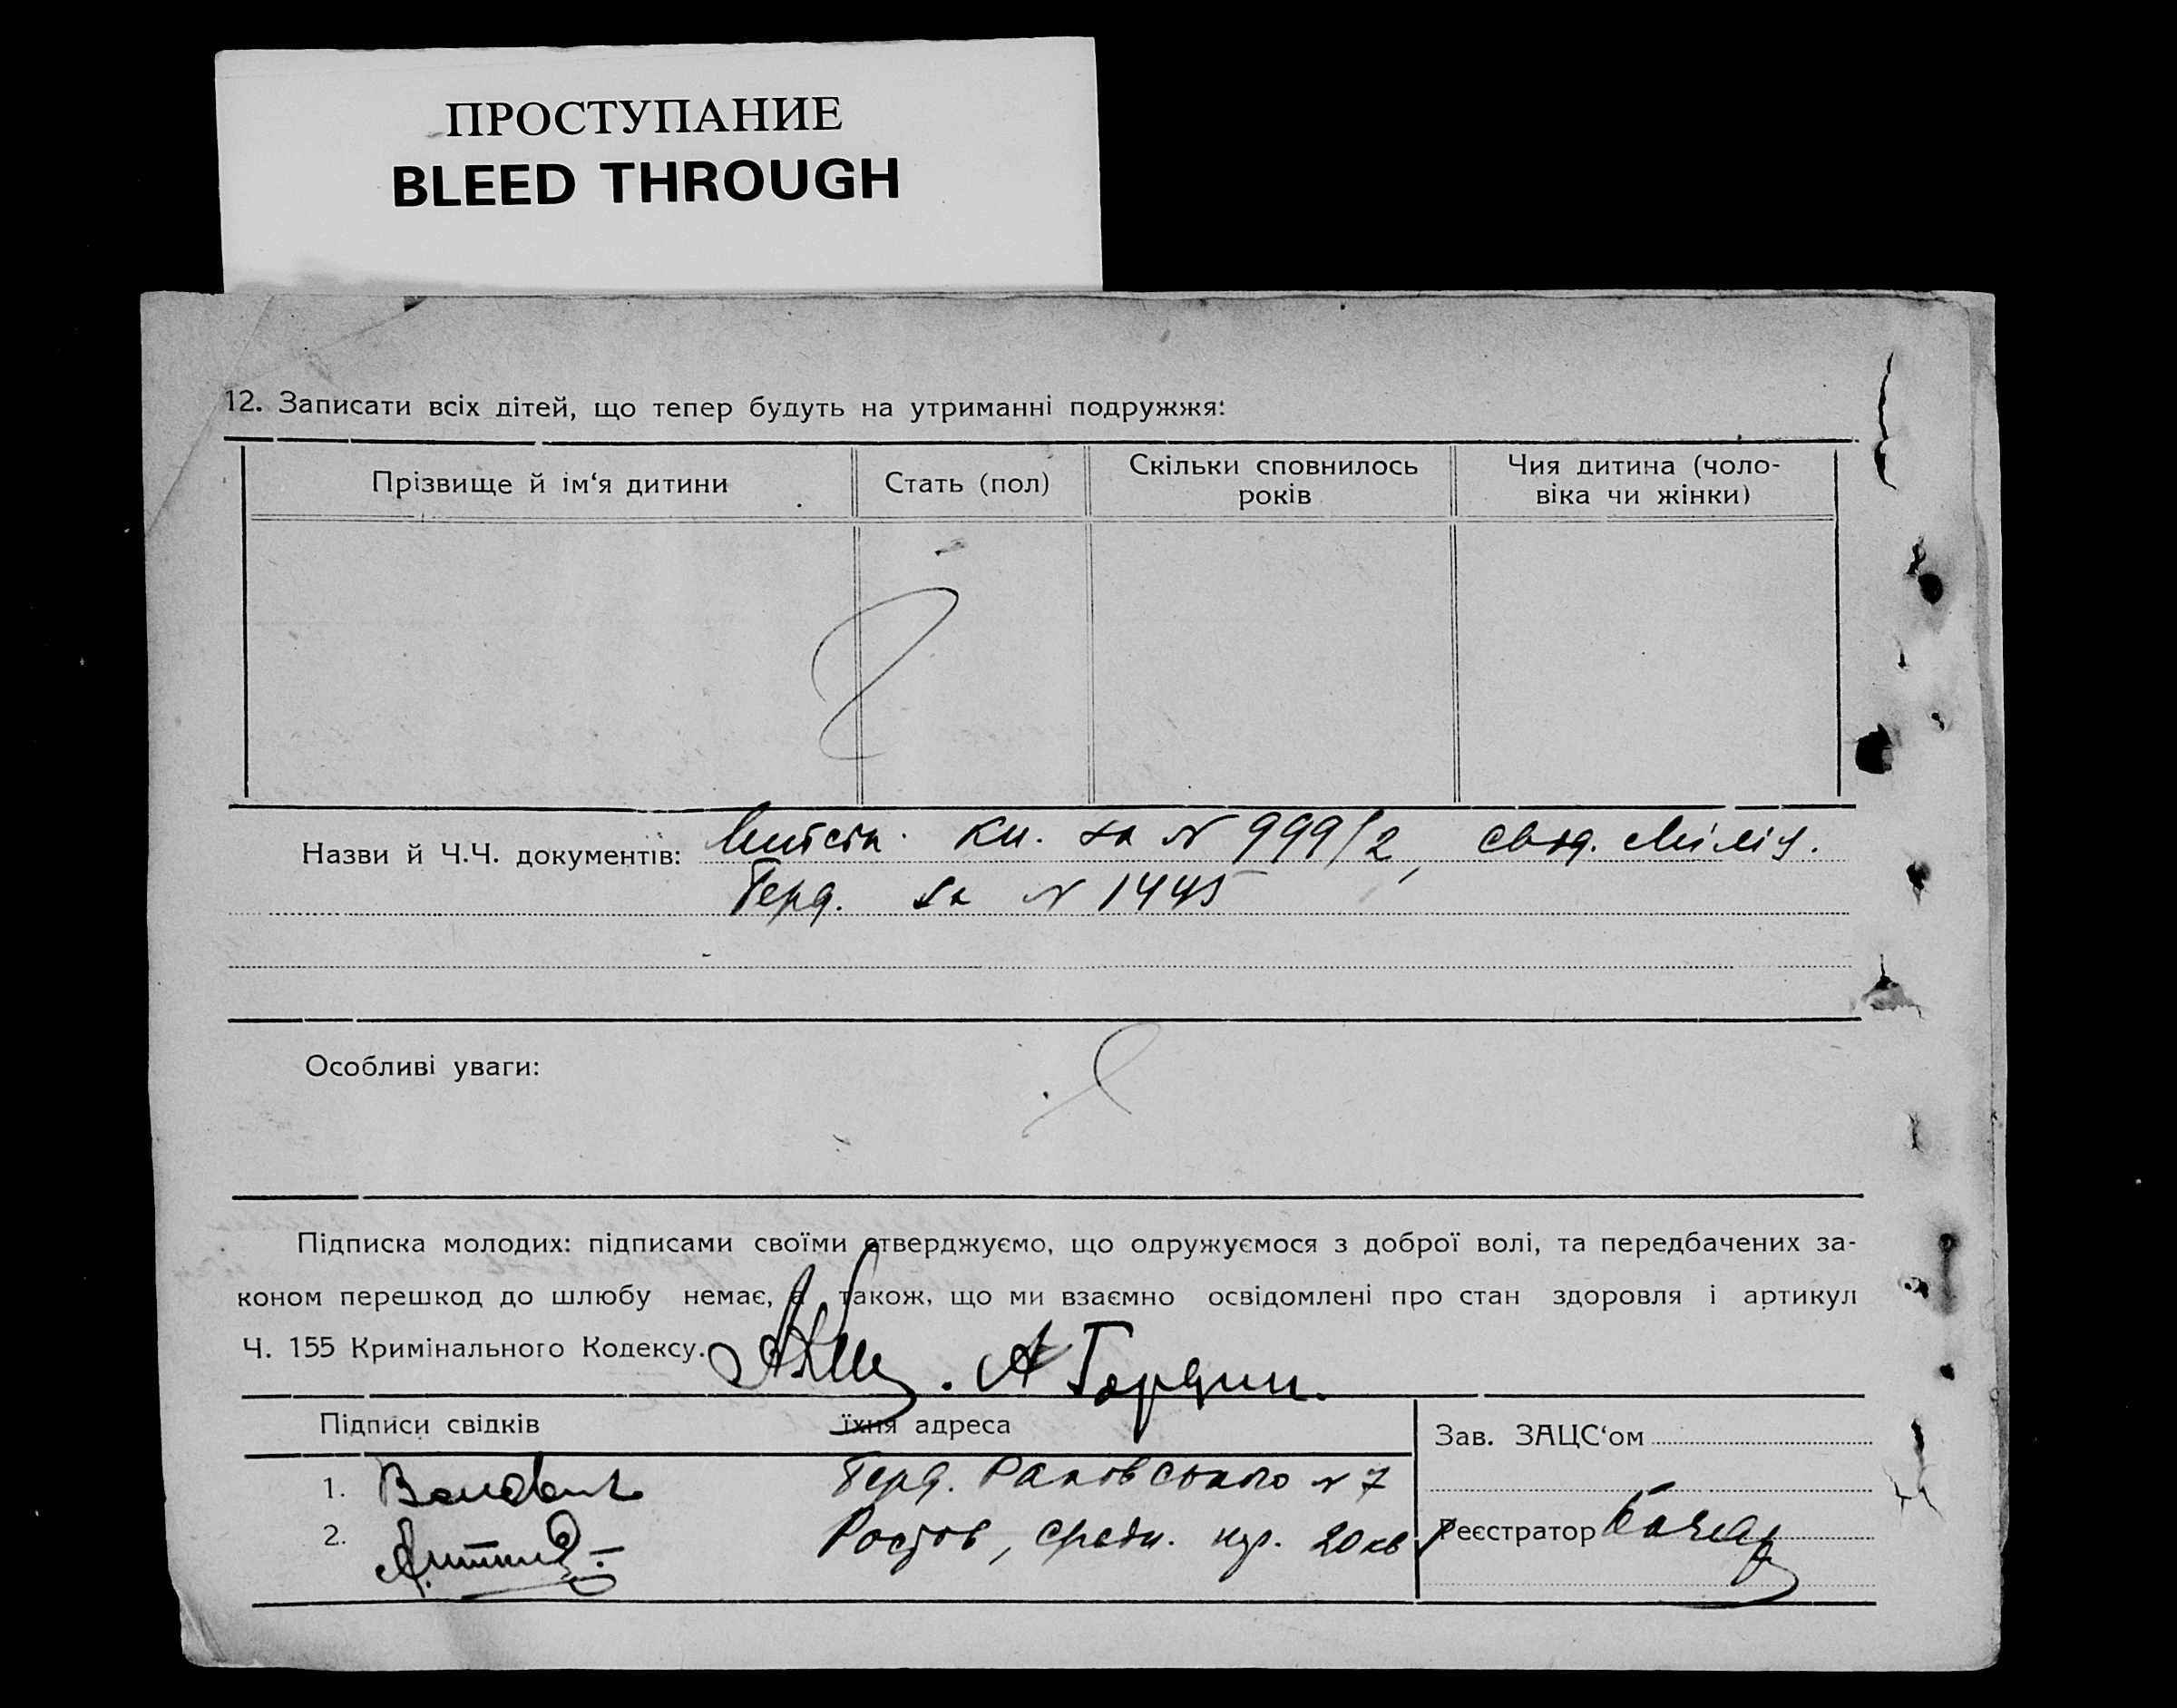 ПРОСТУПАНИЕ
BLEED THROUGH
12. Записати всіх дітей, що тепер будуть на утриманні подружжя:
Прізвище й ім‘я дитини
Стать (пол)
Скільки сповнилось
років
Чия дитина (чоло-
віка чи жінки)
Назви й Ч.Ч. документів: кн. за № 999/2, свод. Міліц.
Герд. за № 1445
Особливі уваги:
Підписка молодих: підписами своїми стверджуємо, що одружуємося з доброї волі, та передбачених за-
коном перешкод до шлюбу немає, а також, що ми взаємно освідомлені про стан здоровля і артикул
Ч. 155 Кримінального Кодексу.
А Гордин.
Підписи свідків
їхня адреса
Зав. ЗАЦС‘ом
1. Герд. Раковського № 7
2. Ростов, 20 кв
Реєстратор